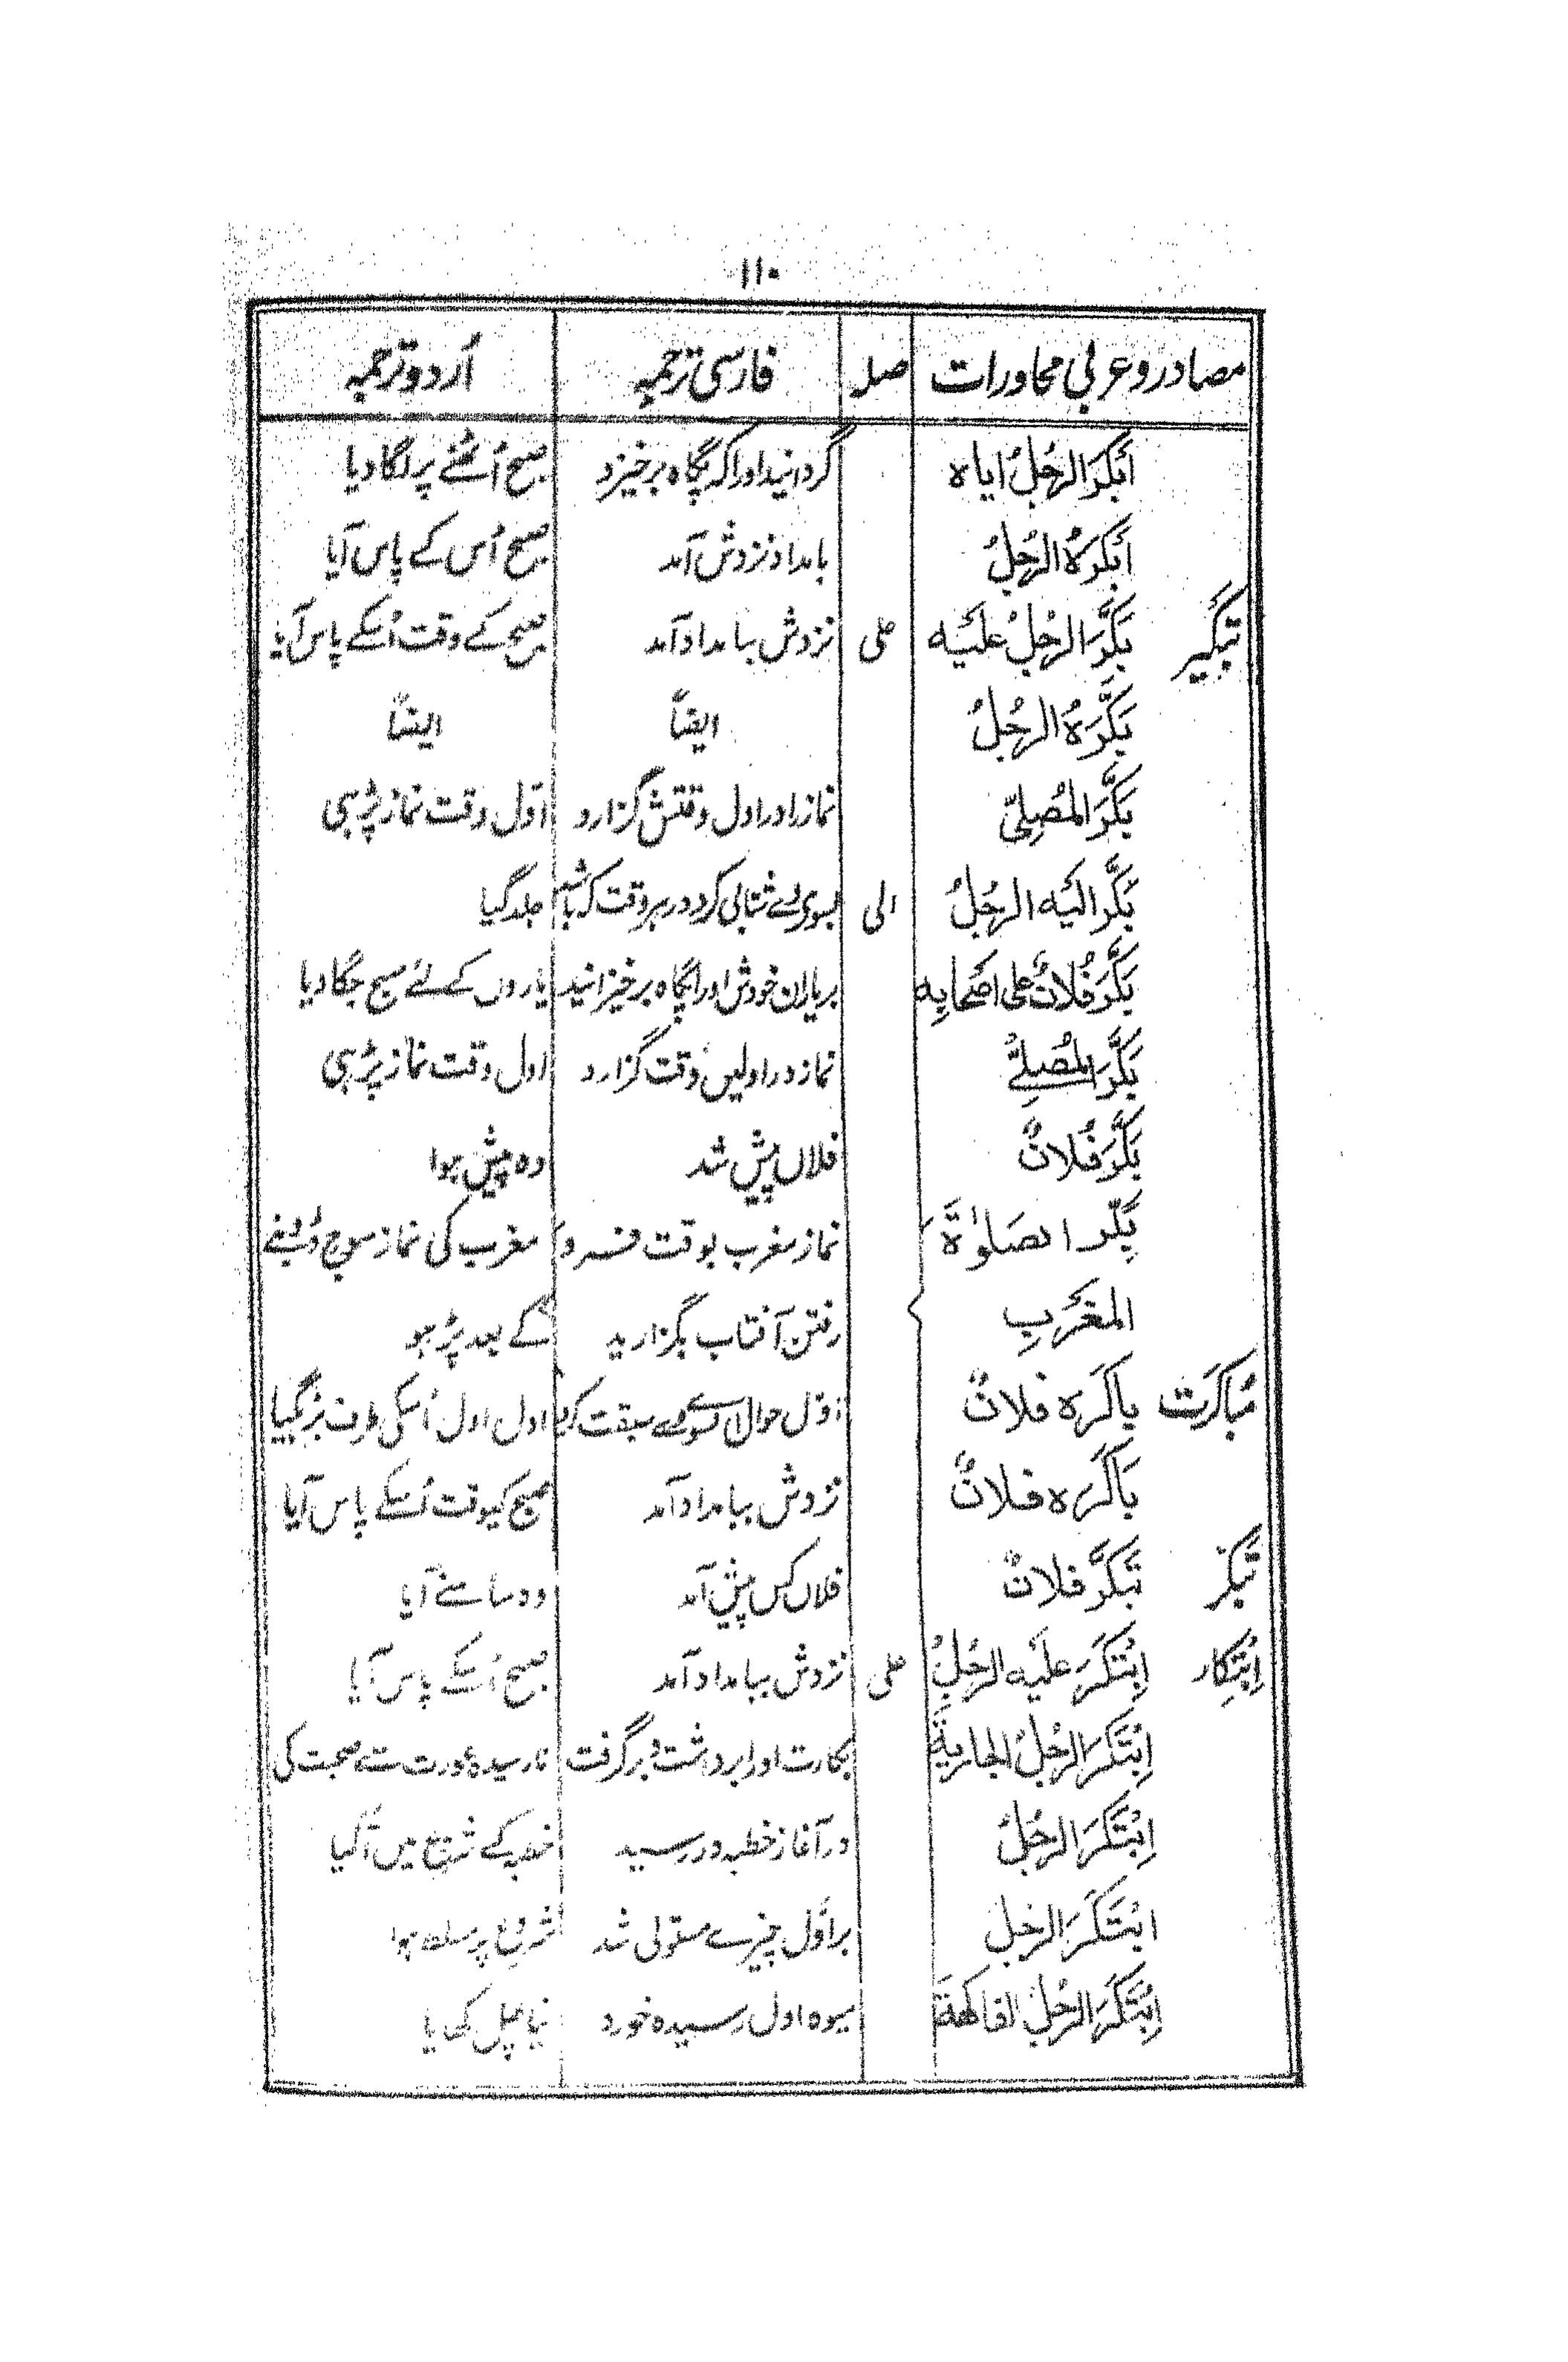 ۱۱۰
مصادر و عربی محاورات صلہ فارسی ترجمہ اُردو ترجمہ
اَبْکَرَ الرجُلُ ایاہ گردانید اورا کہ پگاہ برخیزد صبح اُٹھنے پر لگا دیا
اَبْکَرَہُ الرجُلُ بامداد نزدش آمد صبح اُس کے پاس آیا
تبکیر بَکَّرَ الرجُلُ علَیہ علی نزدش ببامداد آمد صبح کے وقت اُسکے پاس آیا
بَکَّرَہُ الرجُلُ ایضاً ایضاً
بَکَّرَ المُصلِّی نماز را در اول وقتش گزارد اوّل وقت نماز پڑہی
بَکَّرَ الیَہ الرجُلُ الی بسوی وے شتابی کرد در ہر وقت کہ باشد جلد گیا
بَکَّرَ فُلانٌ علی اَصحابِہ بر یاران خودش اورا پگاہ برخیزانید یاروں کے لئے صبح جگا دیا
بَکَّرَ المُصلِّے نماز در اولیں وقت گزارد اول وقت نماز پڑہی
بَکَّرَ فُلانٌ فلاں پیش شد وہ پیش ہوا
بَکِّر الصَلوٰۃَ نماز مغرب بوقت فرو مغرب کی نماز سورج ڈوبنے
المغرَبِ رفتن آفتاب بگزارید کے بعد پڑہو
مُباکرَت باکَرَہ فلانٌ اوّل حوالی بسوے وے سبقت کرد اول اول اُسکی طرف بڑہگیا
باکَرَہ فلانٌ نزدش ببامداد آمد صبح کیوقت اُسکے پاس آیا
تَبکُّر تَبکَّرَ فلانٌ فلاں کس پیش آمد وہ سامنے آیا
اِبْتِکار اِبْتَکَرَ علَیہ الرجُلُ علی نزدش ببامداد آمد صبح اُسکے پاس آیا
اِبْتَکَرَ الرجُلُ الجاریۃَ بکارت اورا برداشت و برگرفت نارسیدہ عورت سے صحبت کی
اِبْتَکَرَ الرجُلُ در آغاز خطبہ در رسید خطبہ کے شروع میں آگیا
ابْتَکَرَ الرجل بر اوّل چیزے مستولی شد شروع پر مسلط ہوا
اِبْتَکَرَ الرجُلُ الفاکھۃَ میوہ اول رسیدہ خورد نیا پھل کھایا